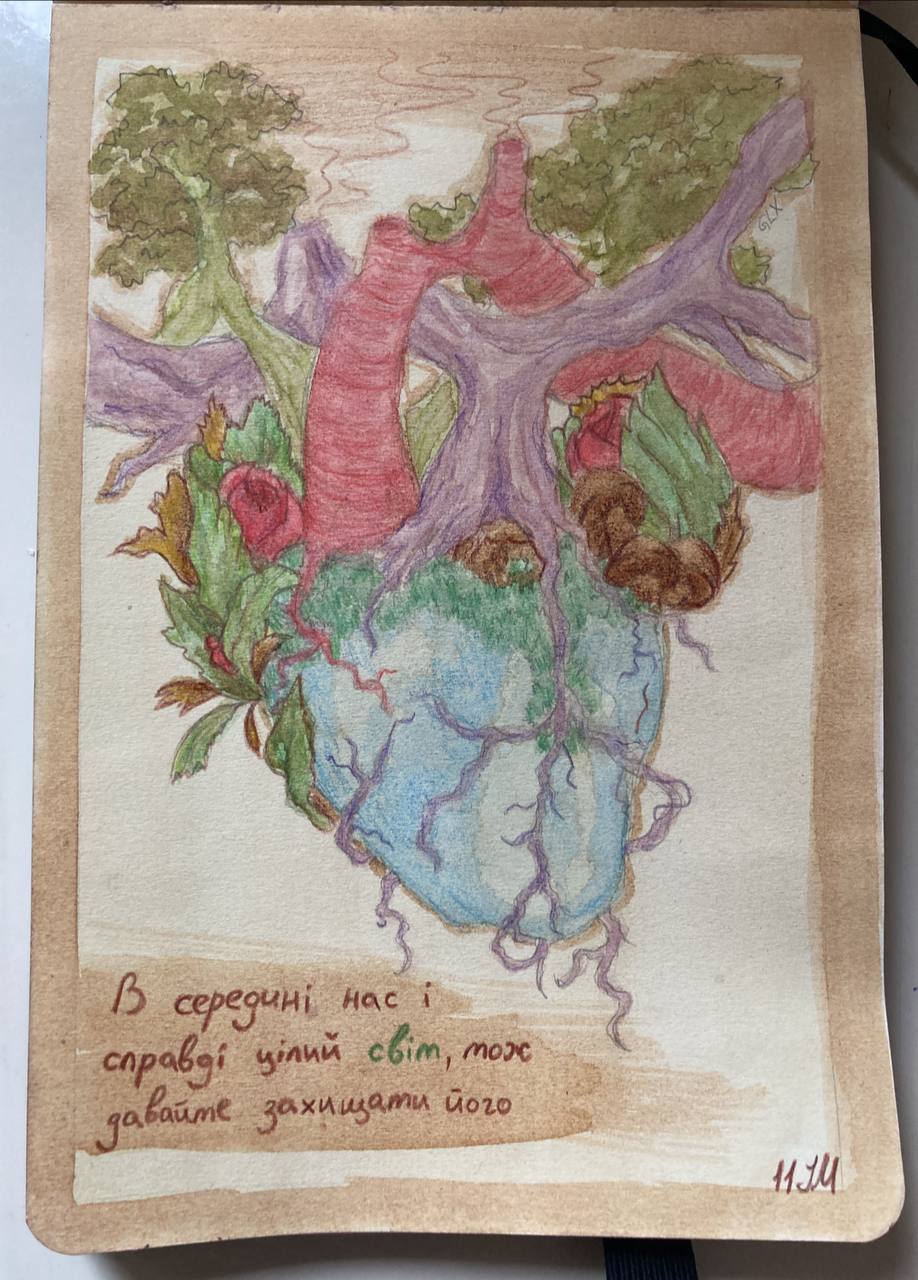 GLX
В середині нас і
справді цілий світ, тож
давайте захищати його
11ІМ